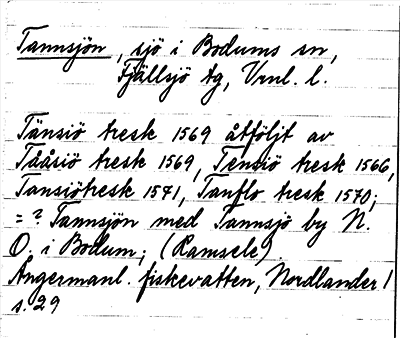 Tannsjön, sjö i Bodums sn,
Fjällsjö tg, Vrnl. l.
Tänsiö tresk 1569 åtföljt av
Tååsiö tresk 1569, Tensiö tresk 1566,
Tansiötresk 1571, Tanflo tresk 1570;
= ? Tannsjön med Tannsjö by N.
O. i Bodum; (Ramsele).
Ångermanl. fiskevatten, Nordlander 1
s. 29